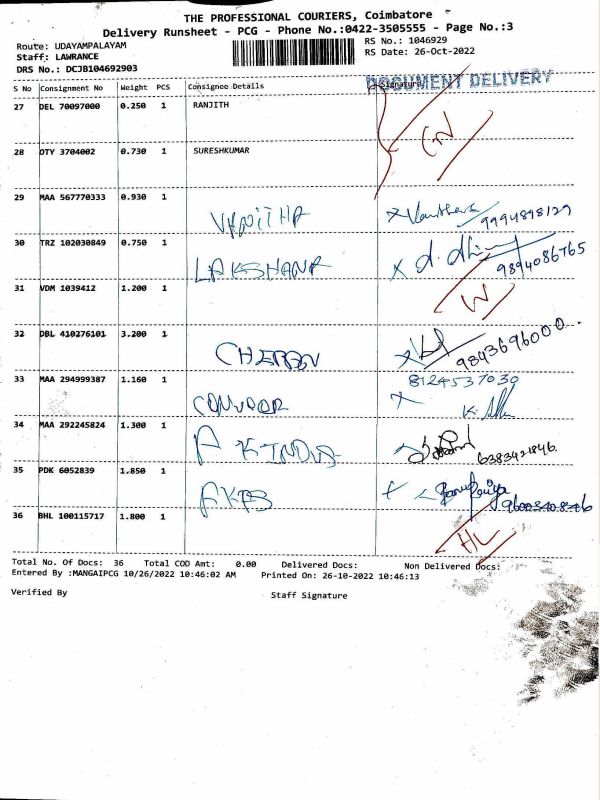 THE PROFESSIONAL COURIERS, Coimbatore
Delivery Runsheet - PCG - Phone No.:0422-3505555 - Page No.:3
Route: UDAYAMPALAYAM
RS No.: 1046929
Staff: LAWRANCE
RS Date: 26-Oct-2022
DRS No.: DCJB104692903
S No Consignment No Weight PCS Consignee Details Signature
DOCUMENT DELIVERY
27 DEL 70097000 0.250 1 RANJITH
28 OTY 3704002 0.730 1 SURESHKUMAR
29 MAA 567770333 0.930 1
VANITHA 9994898129
30 TRZ 102030849 0.750 1
LAKSHANA 9894086765
31 VDM 1039412 1.200 1
32 DBL 410276101 3.200 1
9843696000
33 MAA 294999387 1.160 1 8124537030
34 MAA 292245824 1.300 1
6383421846
35 PDK 6052839 1.850 1
36 BHL 100115717 1.800 1
Total No. Of Docs: 36 Total COD Amt: 0.00 Delivered Docs: Non Delivered Docs:
Entered By :MANGAIPCG 10/26/2022 10:46:02 AM Printed On: 26-10-2022 10:46:13
Verified By Staff Signature